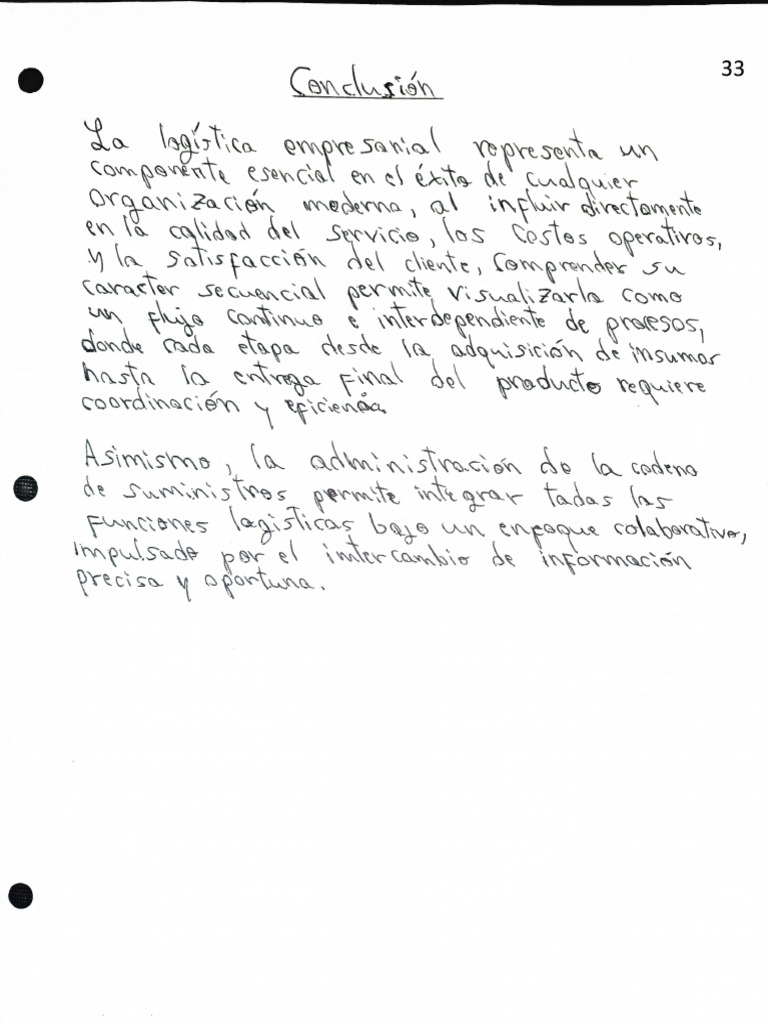 33
Conclusión
La logística empresarial representa un
componente esencial en el éxito de cualquier
organización moderna, al influir directamente
en la calidad del servicio, los costos operativos,
y la satisfacción del cliente, Comprender su
caracter secuencial permite visualizarla como
un flujo continuo e interdependiente de procesos,
donde cada etapa desde la adquisición de insumos
hasta la entrega final del producto requiere
coordinación y eficiencia.
Asimismo, la administración de la cadena
de suministros permite integrar todas las
funciones logisticas bajo un enfoque colaborativo,
impulsado por el imtercambio de información
precisa y oportuna.